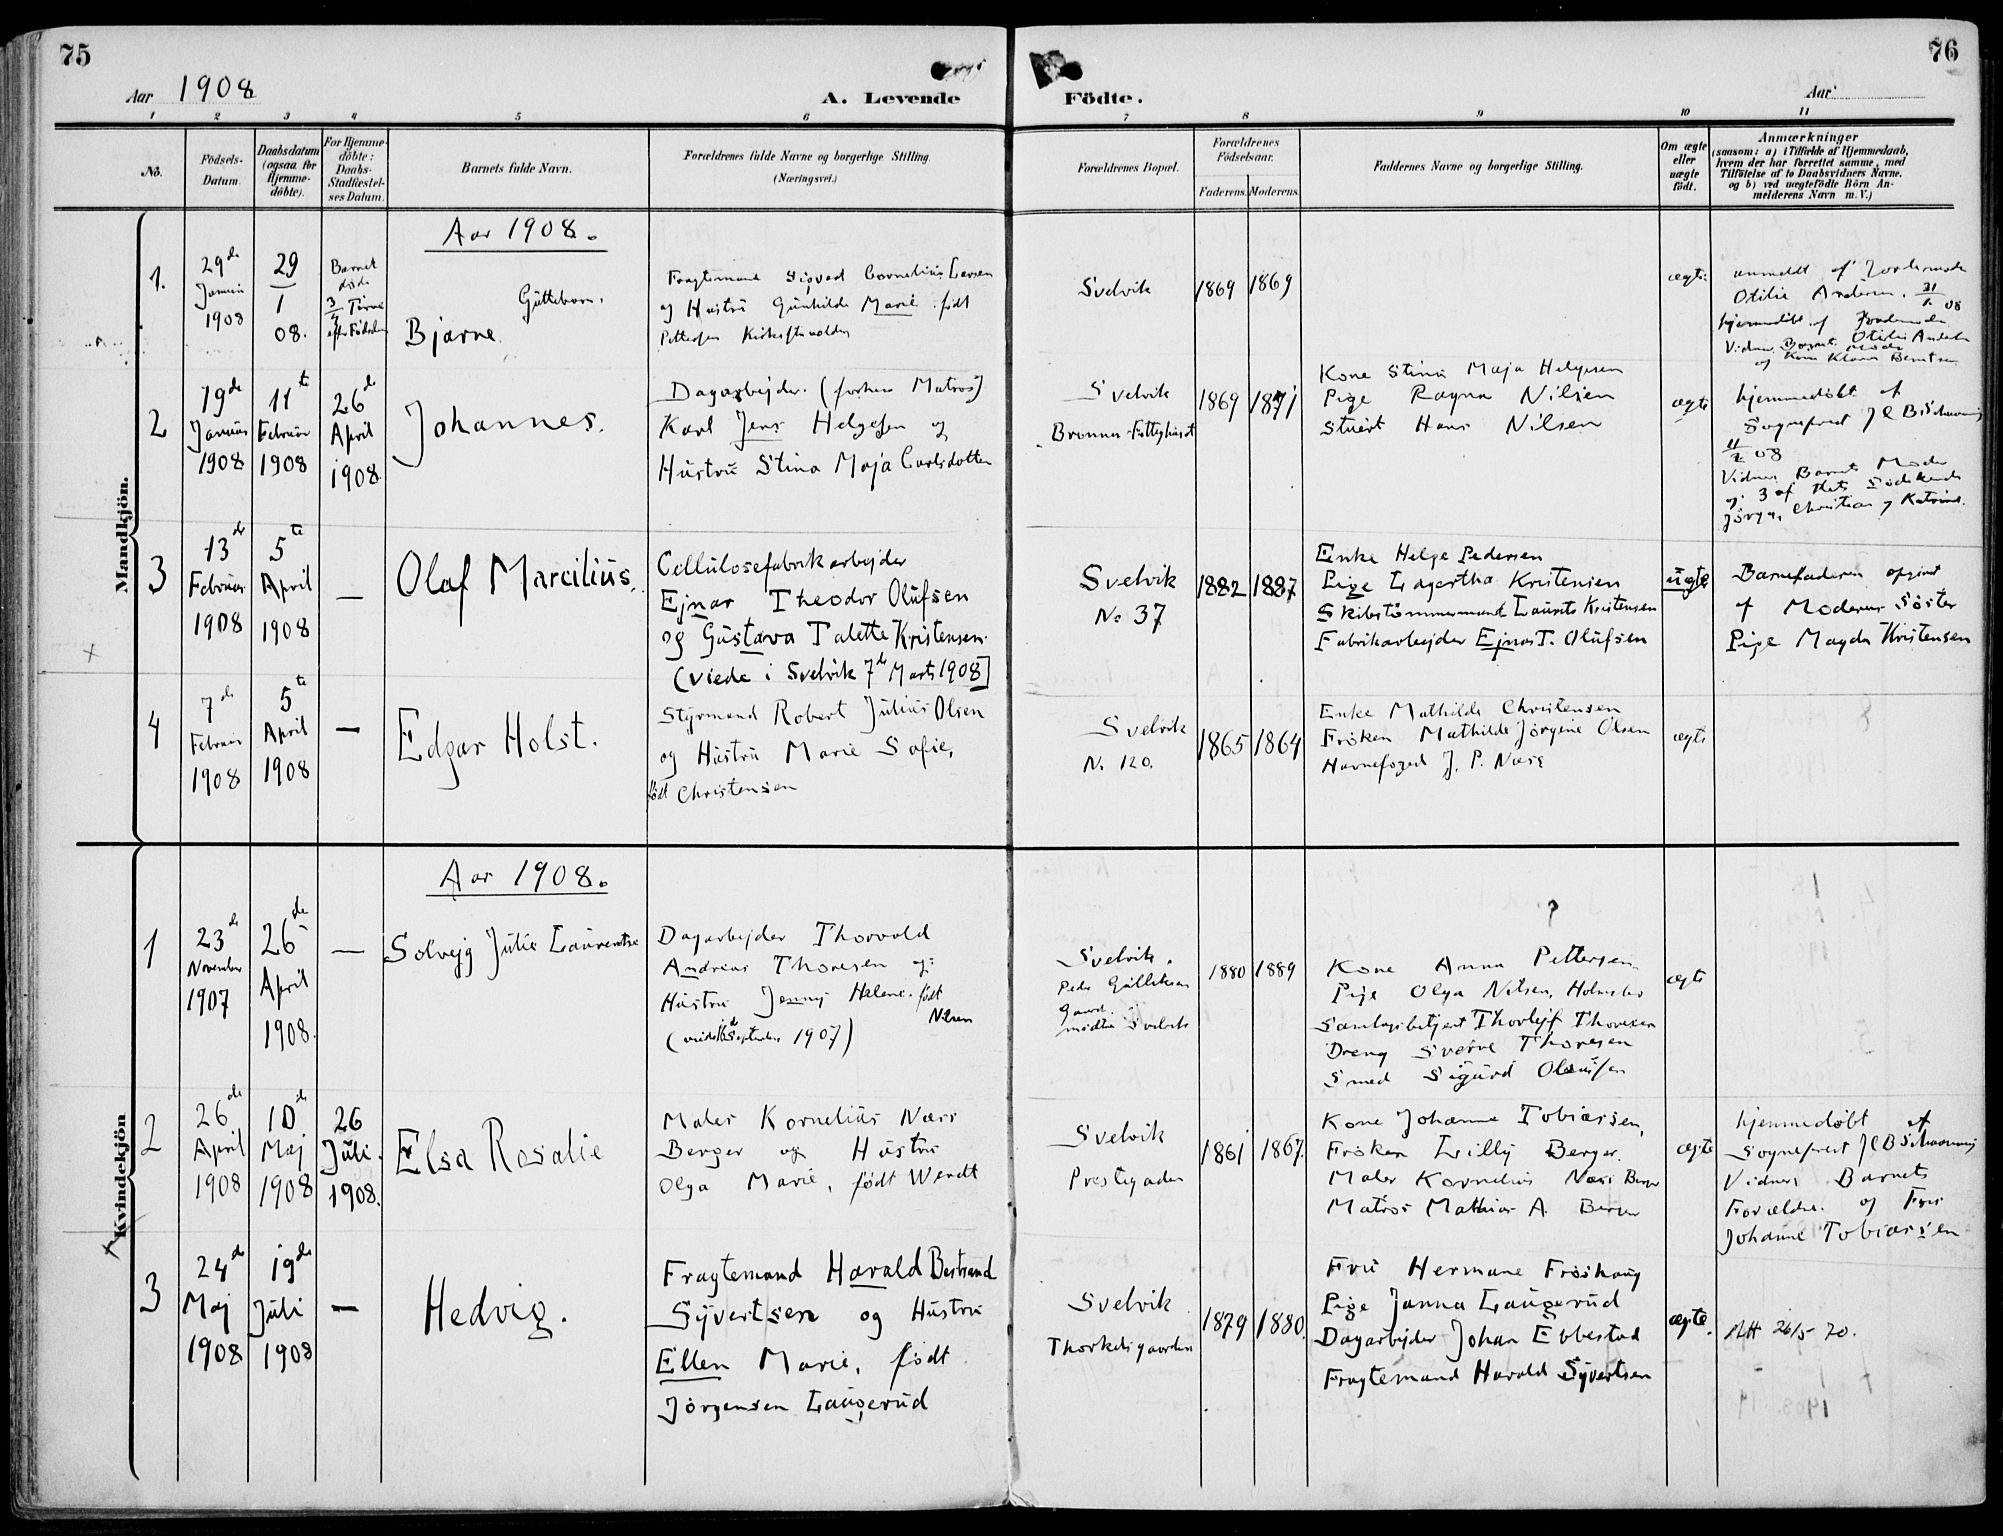 75
76
Aar 1908
A. Levende
Födte.
Aar
1 2 3 4 5 6 7 8 9 10 11
No.
Födsels-
Datum.
Daabsdatum
(ogsaa for
Hjemme-
döbte).
For Hjemme-
döbte:
Daabs-
Stadfæstel-
ses Datum.
Barnets fulde Navn.
Forældrenes fulde Navne og borgerlige Stilling.
(Næringsvei.)
Forældrenes Bopæl.
Forældrenes
Födselsaar.
Faderens. Moderens.
Faddernes Navne og borgerlige Stilling.
Om ægte
eller
uægte
födt.
Anmærkninger
(saasom: a) i Tilfælde af Hjemmedaab,
hvem der har forrettet samme, med
Tilföielse af to Daabsvidners Navne,
og b) ved uægtefödte Börn An-
melderens Navn m. V.)
Mandkjön.
Aar 1908.
1.
29de
Januar
1908
29
1
08.
Barnet
døde
3/4 Time
efter Fødselen
Guttebarn.
Bjarne
Fragtemand Sigvad Cornelius Larsen
og Hustru Gunhilde Marie født
Pettersen
Svelvik
1869 1869
ægte
anmeldt af Jordemoder
Otilie Andersen. 31/1 08
hjemmedøbt af Jordemoder
Otilie Andersen
Vidner Barnets Moder
og Kone Klara Berntsen
2
19de
Januar
1908
11te
Februar
1908
26de
April
1908.
Johannes.
Dagarbejder. (forhen Matros)
Karl Jens Helgesen og
Hustru Stina Maja Carlsdotter
Svelvik
Brønnes-Fattighuset
1869 1871
Kone Stina Maja Helgesen
Pige Ragna Nilsen
Stuert Hans Nilsen
ægte
hjemmedøbt af
Sogneprest J C B Schwenning
11/2 08
Vidner Barnets Moder
og 3 af dets Sødskende
Jørgen, Christian og Katrine.
3
13de
Februar
1908
5te
April
1908
—
Olaf Marcilius.
Cellulosefabrikarbejder
Ejnar Theodor Olufsen
og Gustava Talette Kristensen.
(viede i Svelvik 7de Marts 1908]
Svelvik
No 37
1882 1887
Enke Helge Pedersen
Pige Lagertha Kristensen
Skibstømmermand Laurits Kristensen
Fabrikarbejder Ejnar T. Olufsen
uægte
Barnefaderen opgivet
af Moderens Søster
Pige Magda Kristensen
4
7de
Februar
1908
5te
April
1908
—
Edgar Holst.
Styrmand Robert Julius Olsen
og Hustru Marie Sofie,
født Christensen
Svelvik
No 120.
1865 1864
Enke Mathilde Christensen
Frøken Mathilde Jørgine Olsen
Havnefoged J. P. Næss
ægte
Kvindekjön
Aar 1908.
1
23de
November
1907
26de
April
1908.
—
Solvejg Julie Laurentze
Dagarbejder Thorvald
Andreas Thoresen og
Hustru Jenny Helene født
Nilsen
(viede September 1907)
Svelvik.
Peder Gulliksen
Gaard.
midtre Svelvik
1880 1889
?
Kone Anna Pettersen
Pige Olga Nilsen, Holmsbo
Samlagsbetjent Thorleif Thoresen
Dreng Sverre Thoresen
Smed Sigurd Olausen
ægte
2
26de
April
1908
10de
Maj
1908
26
Juli.
1908.
Elsa Rosalie
Maler Kornelius Næss
Berger og Hustru
Olga Marie, født Wendt
Svelvik
Prestegaden
1861 1867.
Kone Johanne Tobiassen,
Frøken Lilly Berger.
Maler Kornelius Næss Berger
Matros Mathias A. Berger
ægte
hjemmedøbt af
Sogneprest J C B Schwenning
Vidner Barnets
Forældre. og Fru
Johanne Tobiassen
3
24de
Maj
1908
19de
Juli
1908
—
Hedvig.
Fragtemand Harald Bertrand
Syvertsen og Hustru
Ellen Marie, født
Jørgensen Laugerud
Svelvik
Thorkelsgaarden
1879 1880.
Fru Hermane Frøshaug
Pige Janna Laugerud
Dagarbejder Johan Ebbestad
Fragtemand Harald Syvertsen
ægte.
Att 26/5-20.